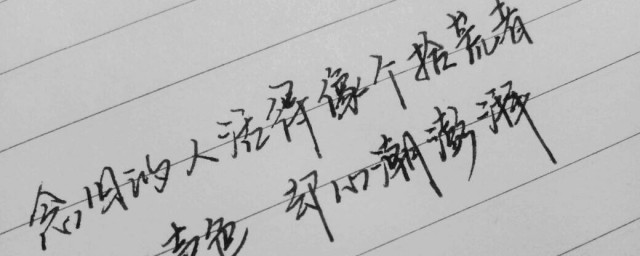 念旧的人活得像个拾荒者
声色 却心潮澎湃